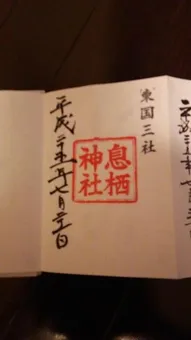 東国三社
息栖
神社
平成二十五年七月二十一日